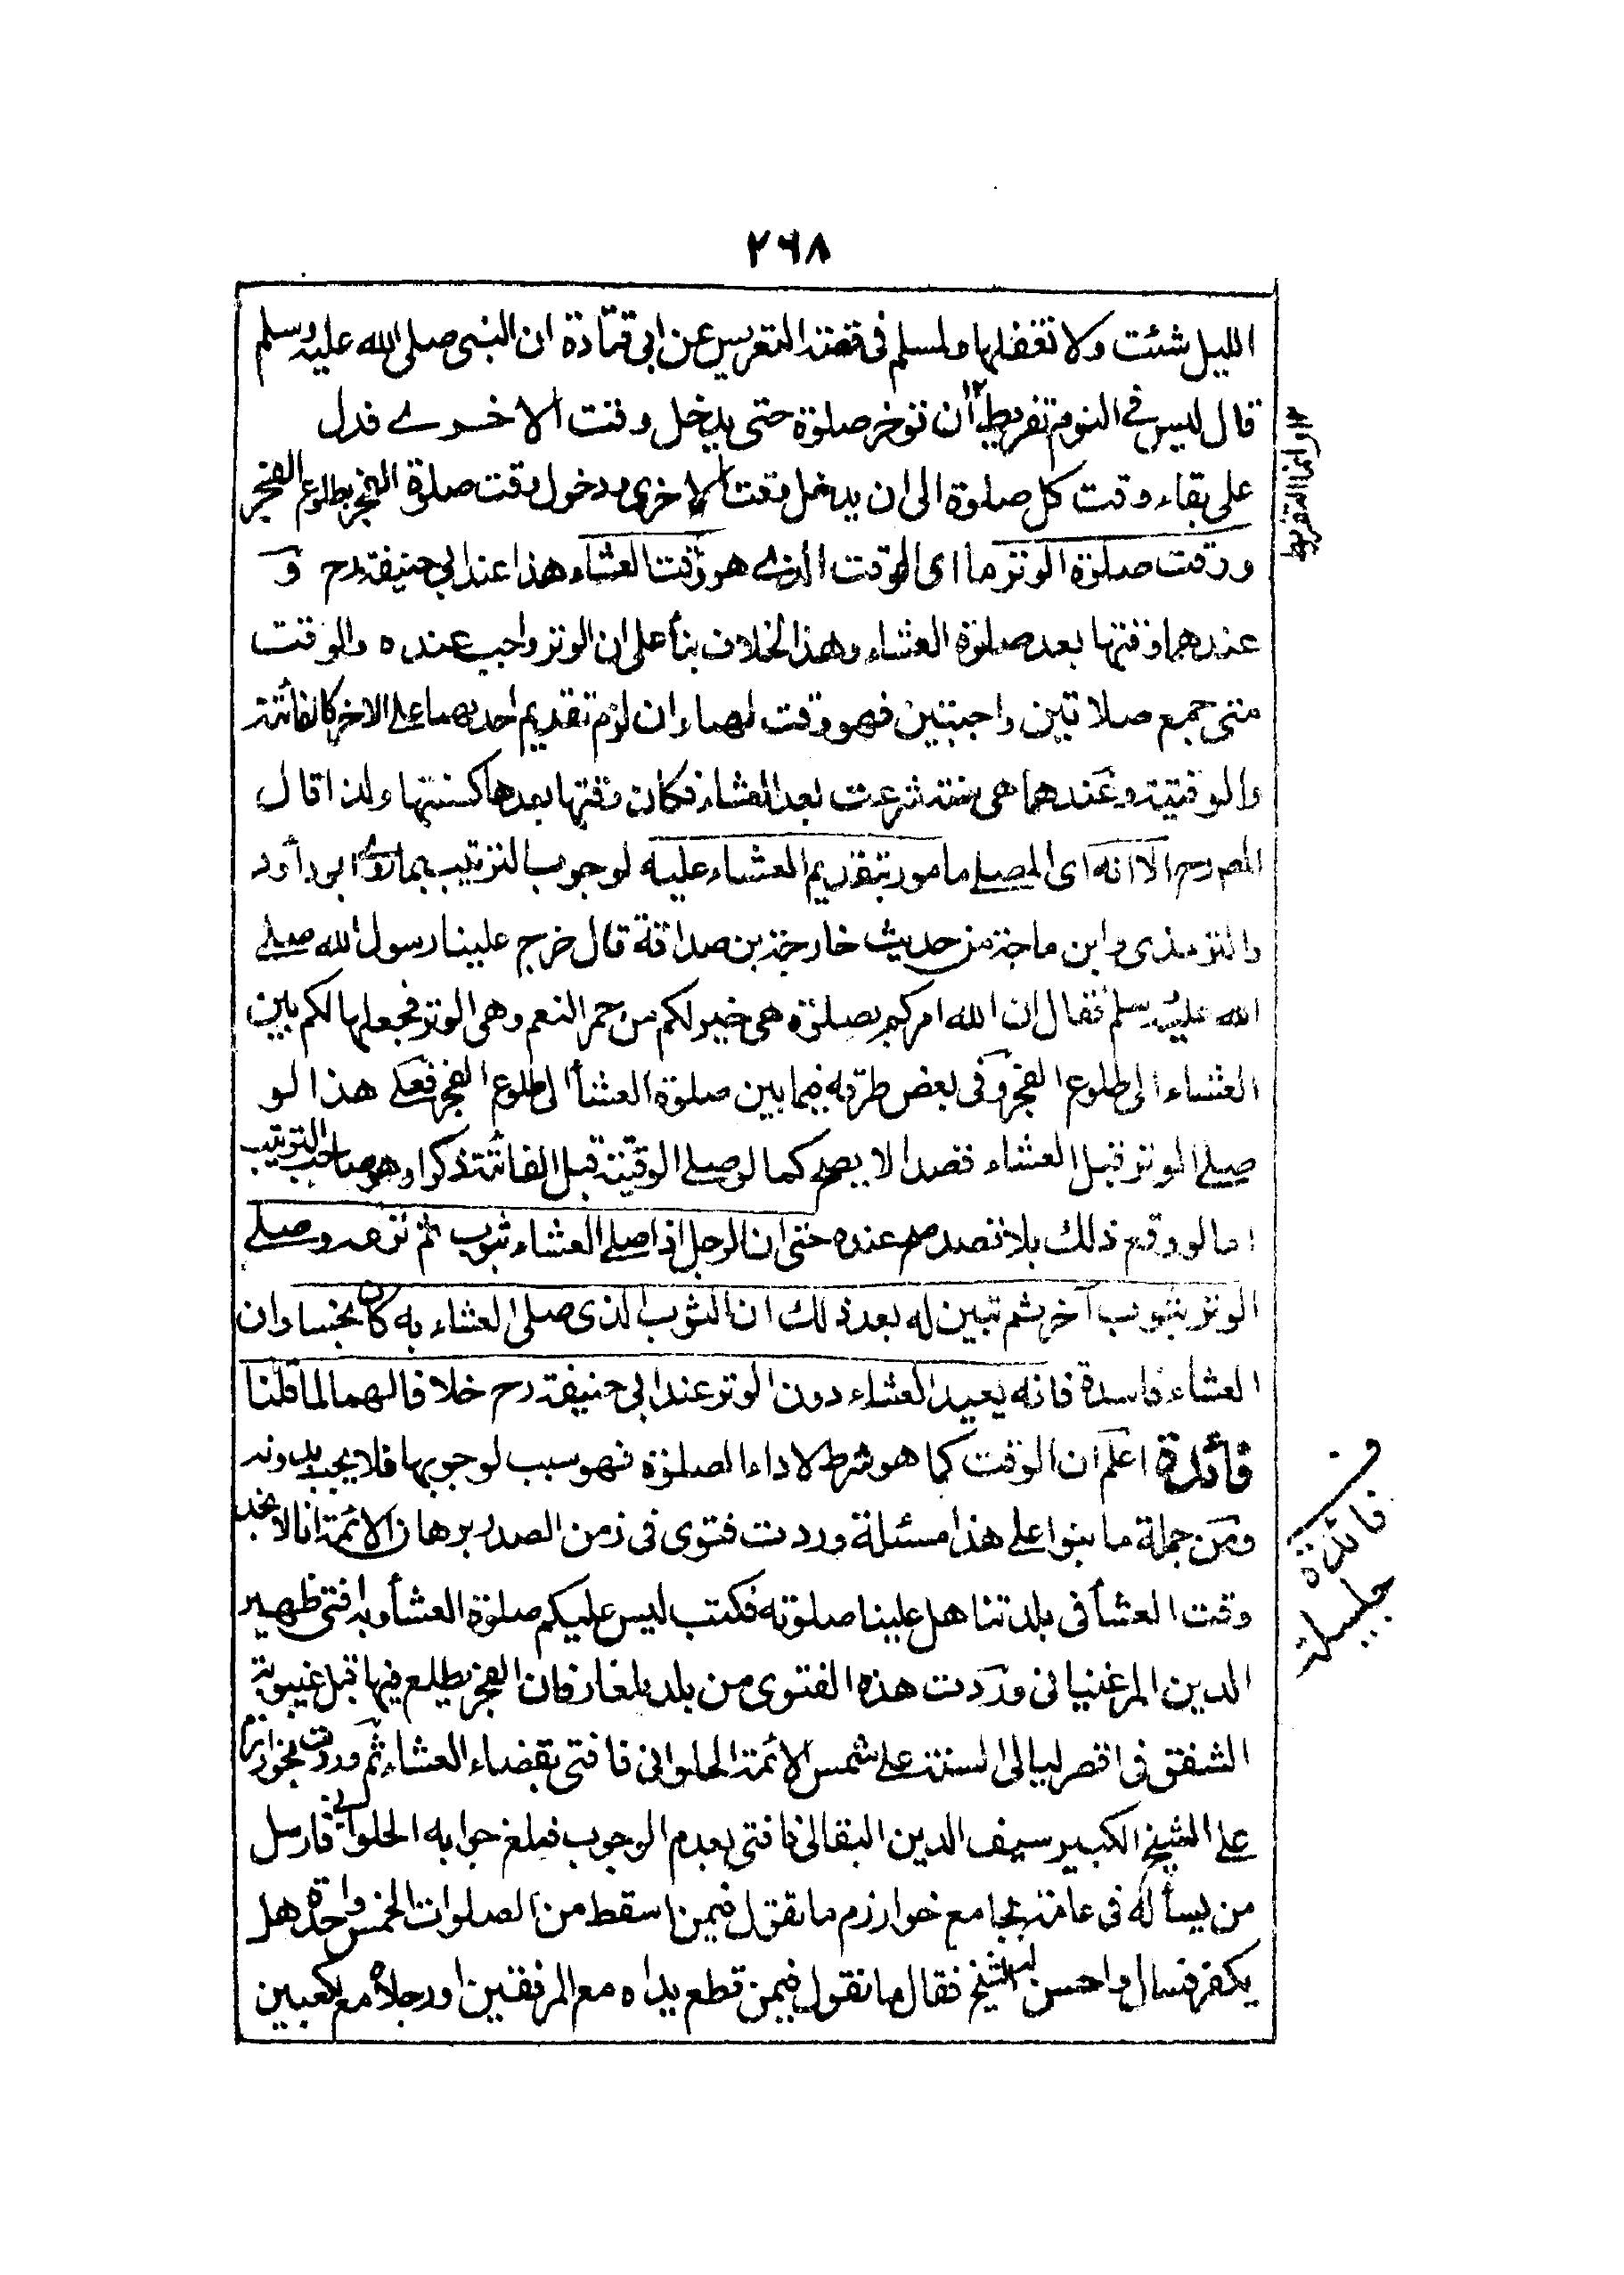 ٢٦٨
الليل شئت ولا تغفلها ولمسلم فى قصة التعريس عن ابى قتادة ان النبى صلى الله عليه وسلم
قال ليس فے النوم تفريط١٢ ان توخر صلوة حتى يدخل وقت الاخرے فدل
على بقاء وقت كل صلوة الى ان يدخل وقت الاخرى ودخول وقت صلوة الفجر بطلوع الفجر
ووقت صلوة الوتر ما اى الوقت الذے هو وقت العشاء هذا عند ابى حنيفة رح و
عندهما وقتها بعد صلوة العشاء وهذا الخلاف بنأ على ان الوتر واجب عنده والوقت
متى جمع صلاتين واجبتين فهو وقت لهما وان لزم تقديم احدهما على الاخر كالفائتة
والوقتية وعندهما هى سنة شرعت بعد العشاء فكان وقتها بعدها كسنتها ولذا قال
المص رح الا انه اى المصلے مامور بتقديم العشاء عليه لوجوب الترتيب بما روے ابو داود
والترمذى وابن ماجة من حديث خارجة بن صداقة قال خرج علينا رسول الله صلے
الله عليه وسلم فقال ان الله امركم بصلوة هى خير لكم من حمر النعم وهى الوتر فجعلها لكم بين
العشاء الى طلوع الفجر وفى بعض طرقه فيما بين صلوة العشأ الى طلوع الفجر فعلے هذا لو
صلے الوتر قبل العشاء قصدا لا يصح كما لو صلے الوقتية قبل الفائتة ذكرا وهو صاحب الترتيب
اما لو وقع ذلك بلا قصد صح عنده حتى ان الرجل اذا صلے العشاء بثوب ثم نزعه وصلے
الوتر بثوب آخر ثم تبين له بعد ذلك ان الثوب الذى صلى العشاء به كان نجسا وان
العشاء فاسدة فانه يعيد العشاء دون الوتر عند ابى حنيفة رح خلافا لهما لما قلنا
فائدة اعلم ان الوقت كما هو شرط لاداء الصلوة فهو سبب لوجوبها فلا يجب بدونه
ومن جملة ما بنوا على هذا مسئلة وردت فتوى فى زمن الصدر برهان الائمة انا لا نجد
وقت العشأ فى بلدتنا هل علينا صلوته فكتب ليس عليكم صلوة العشأ وبه افتى ظهير
الدين المرغينانى وردت هذه الفتوى من بلد بلغار فان الفجر يطلع فيها قبل غيبوبة
الشفق فى اقصر ليالى السنة على شمس الائمة الحلوانى فافتى بقضاء العشاء ثم وردت بخوارزم
على الشيخ الكبير سيف الدين البقالى فافتى بعدم الوجوب فبلغ جوابه الحلوانى فارسل
من يسأله فى عامة بجامع خوارزم ما تقول فيمن اسقط من الصلوات الخمس واحدة هل
يكفر فسال واحسن به الشيخ فقال ما تقول فيمن قطع يداه مع المرفقين او رجلاه مع الكعبين
١٢ وانما التفريط
ف
فائدة
جليلة